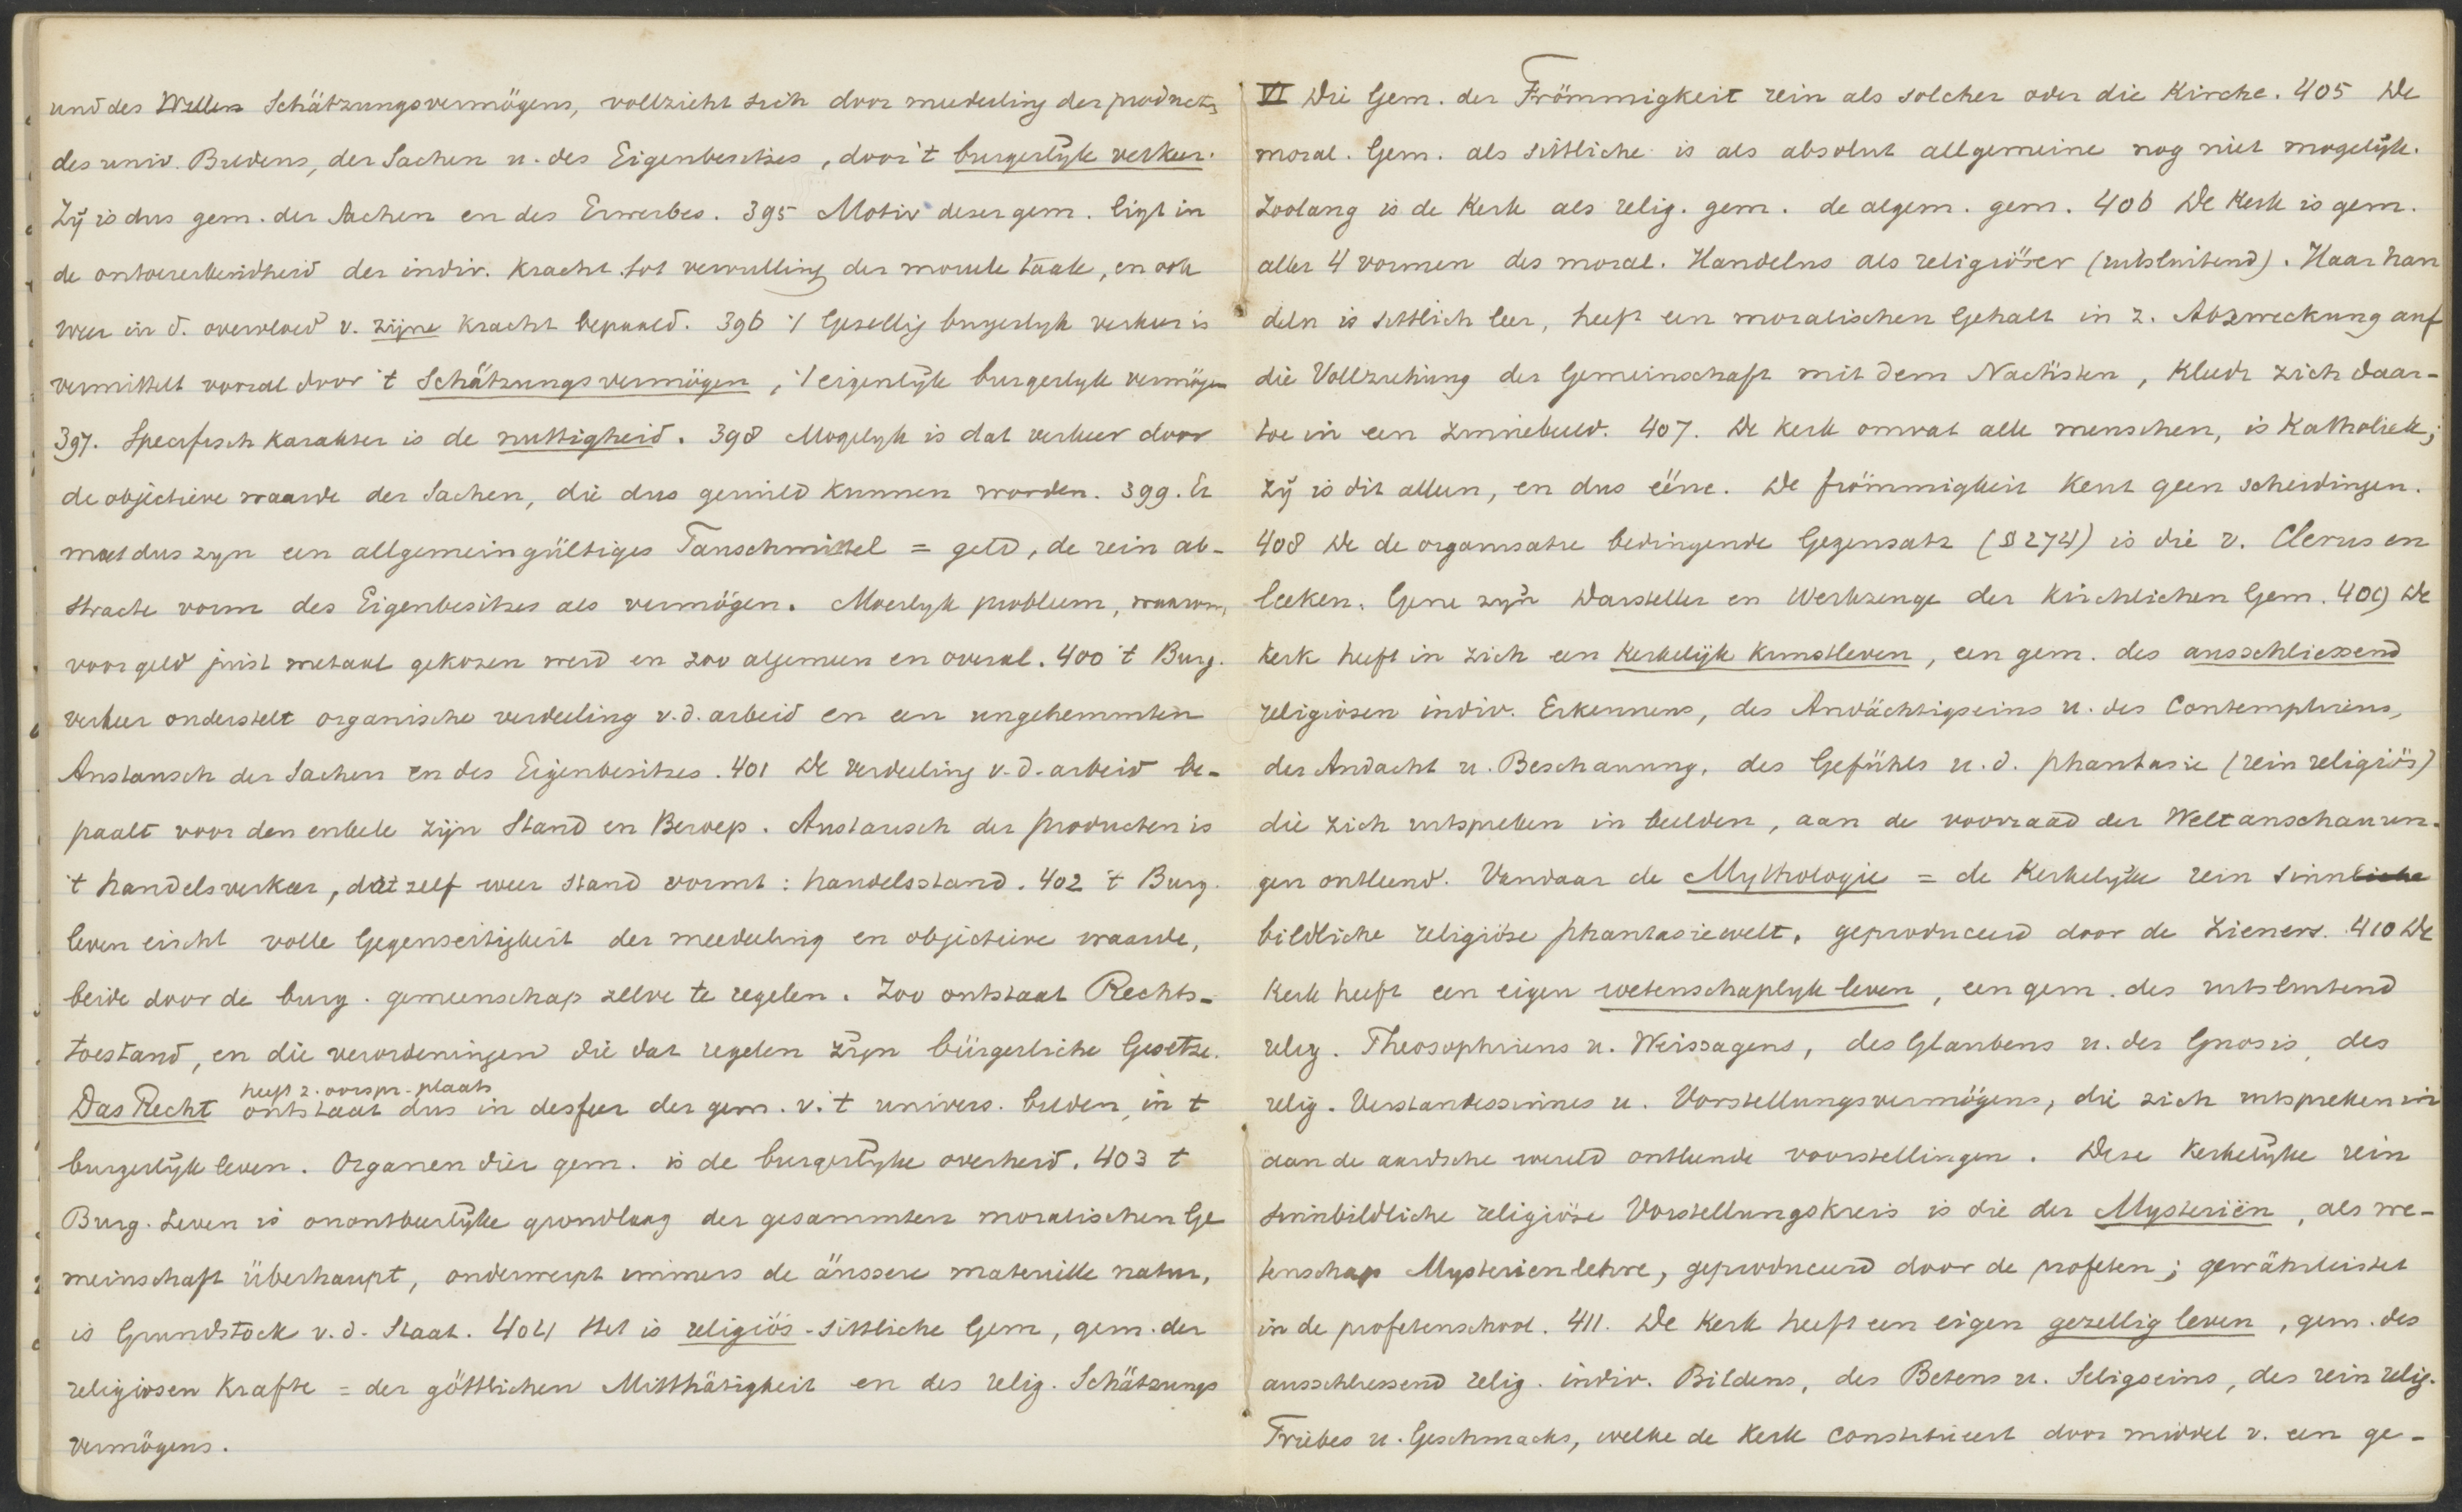 und des Willens Schätzungsvermögens, vollzieht sich door mededeeling der product,
des univ. Bildens, der Sachen u. des Eigenbesitzes, door 't burgerlyk verkeer.
Zij is dus gem. der Sachen en des Erwerbes. 395 Motiv dezer gem. ligt in
de ontoereikendheid der indiv. kracht tot vervulling der moreele taak, en ook
weer in d. overvloed v. zijne kracht bepaald. 396 't Gezellig burgerlyk verkeer is
vermittelt vooral door 't Schätzungsvermögen, 't eigenlijke burgerlyk vermögen
397. Specifisch karakter is de nuttigheid. 398 Mogelyk is dat verkeer door
de objectieve waarde der Sachen, die dus geruild kunnen worden. 399. Er
moet dus zyn een allgemeingültiges Tauschmittel = geld, de rein ab-
stracte vorm des Eigenbesitzes als vermögen. Moeilyk probleem, waarom,
voor geld juist metaal gekozen werd en zoo algemeen en overal. 400 't Burg.
verkeer onderstelt organische verdeeling v. d. arbeid en een ungehemmten
Austausch der Sachen en des Eigenbesitzes. 401 De verdeeling v. d. arbeid be-
paalt voor den enkele zijn Stand en Beroep. Austausch der producten is
't handelsverkeer, dat zelf weer stand vormt: handelsstand. 402 't Burg.
leven eischt volle Gegenseitigkeit der mededeeling en objectieve waarde,
beide door de burg. gemeenschap zelve te regelen. Zoo ontstaat Rechts-
toestand, en die verordeningen die dat regelen zijn bürgerliche Gesetze.
heeft z. oorspr. plaats
Das Recht ontstaat dus in de sfeer der gem. v. 't univers. bilden, in 't
burgerlijk leven. Organen dier gem. is de burgerlyke overheid. 403 't
Burg. Leven is onontbeerlijke grondlaag der gesammten moralischen Ge
meinschaft überhaupt, onderwerpt immers de äussere materielle natur,
is Grundstock v. d. Staat. 404 Het is religiös-sittliche Gem, gem. der
religiosen Krafte = der göttlichen Mitthätigkeit en des relig. Schätzungs
vermögens.
VI Die Gem. der Frömmigkeit rein als solcher oder die Kirche. 405 De
moral. Gem. als sittliche is als absolut allgemeine nog niet mogelijk.
Zoolang is de Kerk als relig. gem. de algem. gem. 406 De Kerk is gem.
aller 4 vormen des moral. Handelns als religiöser (uitsluitend). Haar han
deln is sittlich leer, heeft een moralischen Gehalt in z. Abzweckung auf
die Vollziehung der Gemeinschaft mit dem Nächsten, kleedt zich daar-
toe in een zinnebeeld. 407. De kerk omvat alle menschen, is Katholiek;
zij is dit alleen, en dus ééne. De frömmigkeit kent geen scheidingen.
408 De de organisatie bedingende Gegensatz (§ 274) is die v. Clerus en
leeken. Gene zijn Darsteller en Werkzeuge der kirchlichen Gem. 409 De
kerk heeft in zich een kerkelijk kunstleven, een gem. des ausschliessend
religiosen indiv. Erkennens, des Andächtigseins u. des Contemplirens,
der Andacht u. Beschauung, des Gefühls u. d. phantasie (rein religiös)
die zich uitspreken in beelden, aan de voorraad der Weltanschauun-
gen ontleend. Vandaar de Mythologie = de kerkelyke rein sinnliche
bildliche religiöse phantasiewelt, geproduceerd door de zieners. 410 De
Kerk heeft een eigen wetenschaplyk leven, een gem. des uitsluitend
relig. Theosophirens u. Weissagens, des Glaubens u. der Gnosis, des
relig. Verstandessinnes u. Vorstellungsvermögens, die zich uitspreken in
aan de aardsche wereld ontleende voorstellingen. Deze kerkelijke rein
sinnbildliche religiöse Vorstellungskreis is die der Mysteriën, als we-
tenschap Mysterienlehre, geproduceerd door de profeten; gewährleistet
in de profetenschool. 411. De Kerk heeft een eigen gezellig leven, gem. des
ausschliessend relig. indiv. Bildens, des Betens u. Seligseins, des rein relig.
Triebes u. Geschmacks, welke de Kerk constitueert door middel v. een ge-